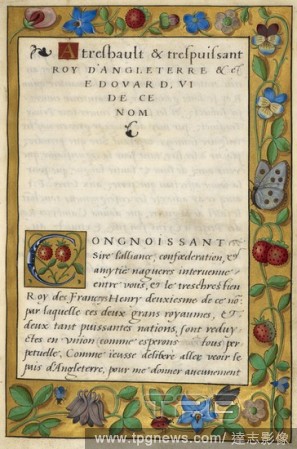 A treshault & trespuissant
ROY D'ANGLETERRE &c
EDOVARD, VI
DE CE
NOM
CONGNOISSANT
sire l'alliance, confoederation, et
amytie nagueres intervenue
entre vous, et le treschrestien
Roy des Francoys Henry deuxiesme de ce nom
par laquelle ces deux grans royaumes, et
deux tant puissantes nations, sont reduy
ctes en union comme esperons tous per
petuelle, Comme ieusse deliberé aller veoir le
pais d'Angleterre, pour me donner aucunement
www.tpgnews.com/達志影像